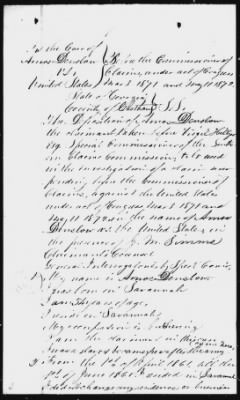 In the Case of
Amos Denslow } Before the Commissioners of
vs. Claims, under act of Congress
United States } Mar 3 1871 and May 11 1872.
State of Georgia }
County of Chatham } S.S.
The Deposition of Amos Denslow
the claimant taken before Virgil Hillyer
Esq Special Commissioner of the
Claims Commission, to be used
in the investigation of a claim now
pending before the Commissioners of
Claims, against the United States
under act of Congress Mar 3 1871 and
May 11 1872 in the name of Amos
Denslow vs the United States, in
the presence of M. Simons
Claimants Counsel
General Interrogatories by Spec'l Com'r.
My name is Amos Denslow
I was born in Savannah
years of age.
I reside in Savannah
My occupation is
I am the claimant in this case
I was a slave
2 From the 1st of April 1861 till the
1st of June 1865 I resided in Savannah
I did not change my residence or business